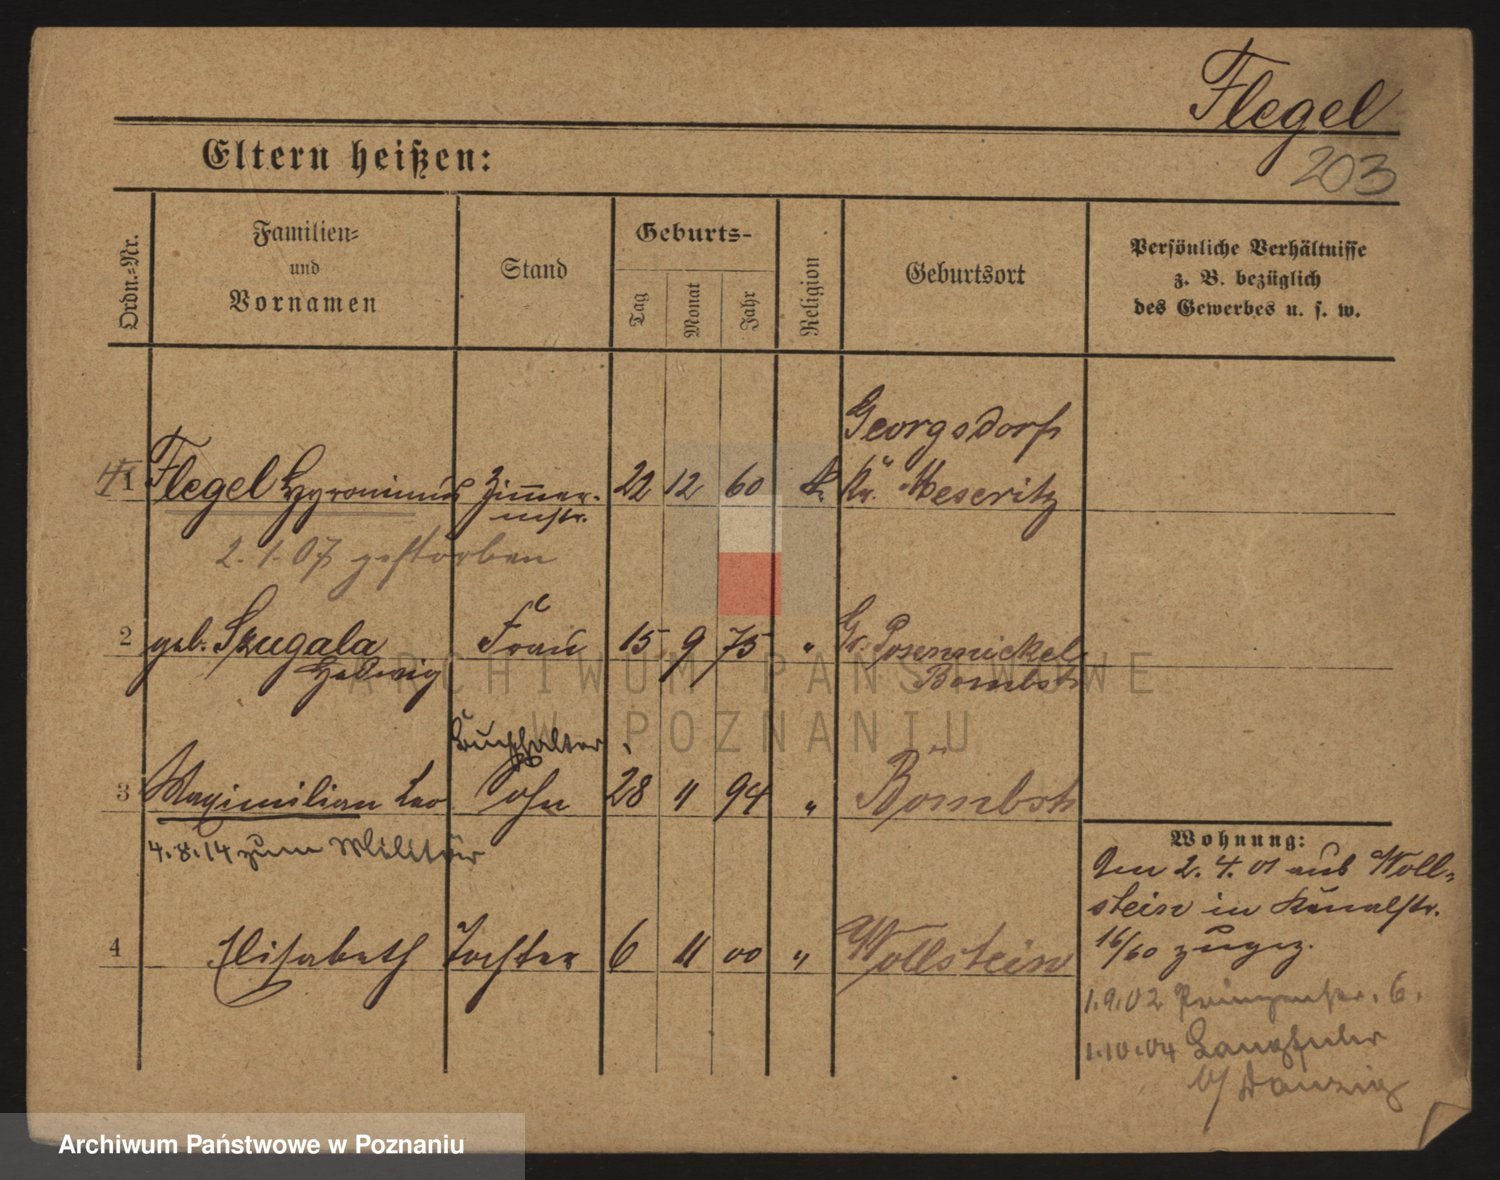 Flegel
203
Eltern heißen:
Ordn.-Nr.
Familien- und Vornamen
Stand
Geburts-
Tag
Monat
Jahr
Religion
Geburtsort
Persönliche Verhältnisse
z. B. bezüglich
des Gewerbes u. s. w.
Georgsdorf
1 Flegel Hyronimus Zimmer- 22 12 60 k. Kr. Meseritz
mstr.
2.1.07 gestorben
2 geb. Skugala Frau 15 9 75 " Gr. Posemuckel
Hedwig Bombst
ARCHIWUM PAŃSTWOWE
W POZNANIU
Buchhalter
3 Maximilian Leo Sohn 28 11 94 " Bombst
4.8.14 zum Militär
Wohnung:
Am 2.4.01 aus Woll-
stein in Kanalstr.
16/60 zugez.
4 Elisabeth Tochter 6 11 00 " Wollstein
1.9.02 Prinzenstr. 6.
1.10.04 Langfuhr
b/ Danzig
Archiwum Państwowe w Poznaniu